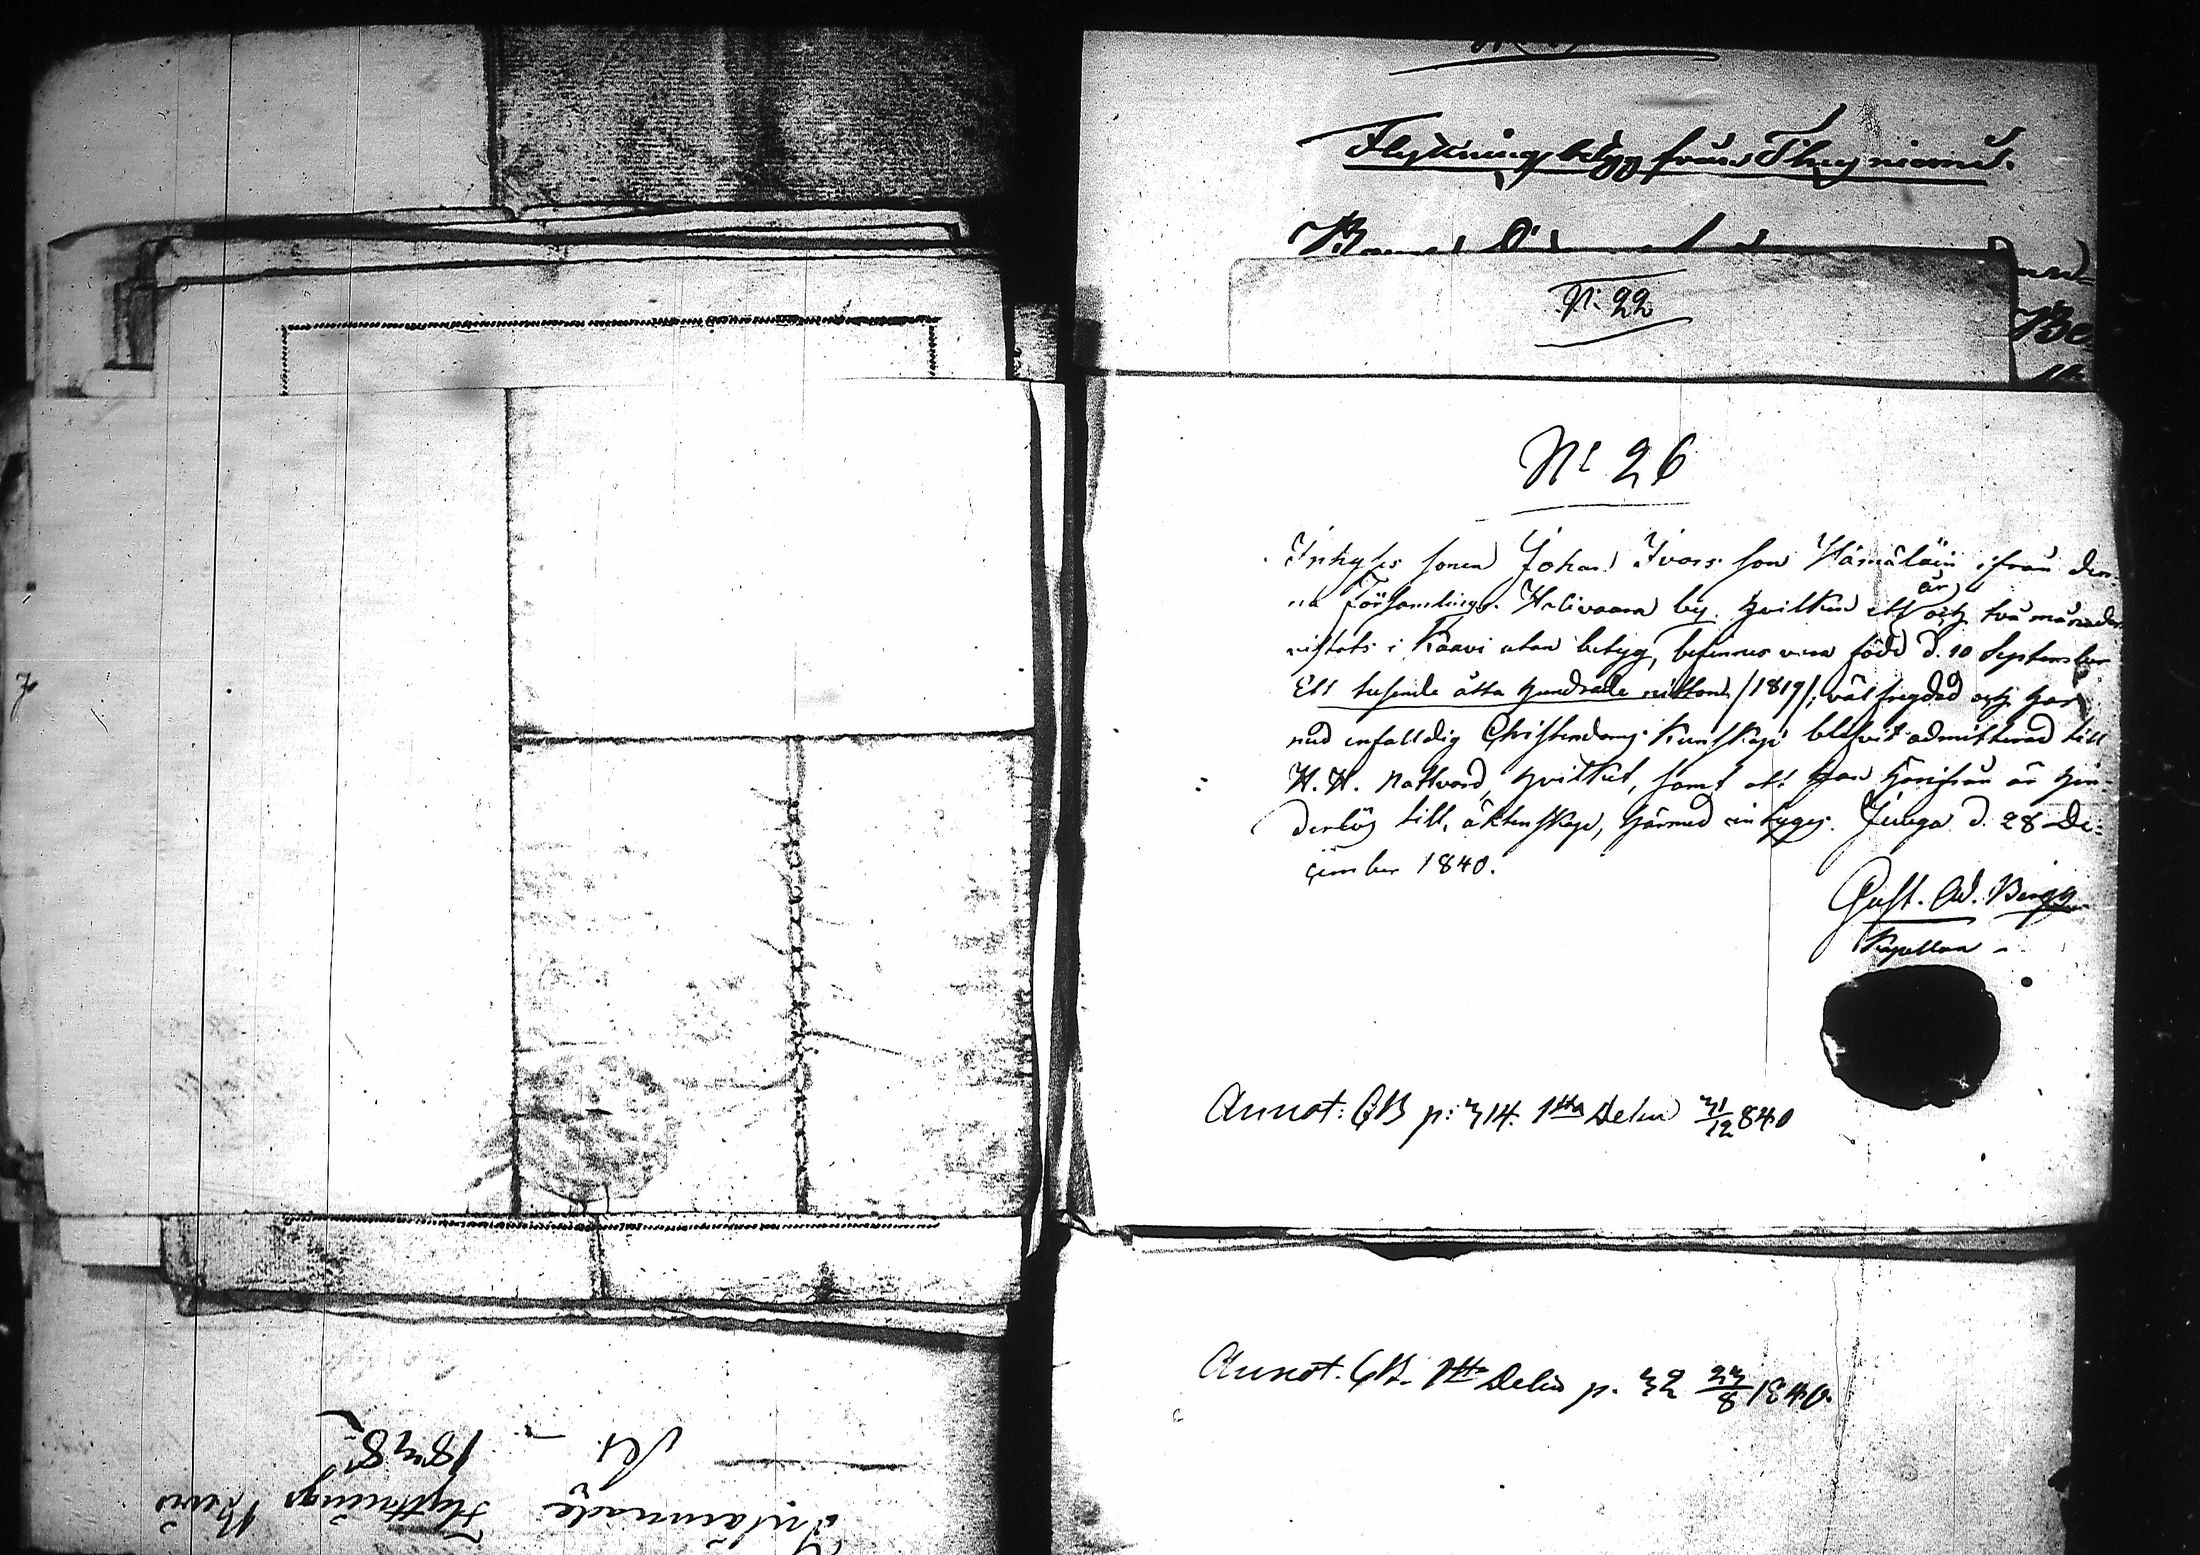 Flyttningsbetyg från Thusniemi.
N: 22
No 26
Inhyses sonen Johan Ivars son Hämäläin ifrån den-
na Församlings Halivaara by, hvilken ett år och två månader
vistats i Kaavi utan betyg, befinnes vara född d. 10 September
Ett tusende åtta hundrade nitton /1819/, välfregdad och har
med enfalldig Christendoms kunskap blifvit admitterad till
H. H. Nattvard, hvilket, samt att han härifrån är hin-
derlös till äktenskap, härmed intygas. Juuga d. 28 De-
cember 1840.
Gust. Ad. Bergg
Kapellan
Annot: CB p: 314. 1sta Delen 31/12 840
Annot. CB. 1sta Delen p. 32 23/8 1840.
Inlämnade
Flyttnings Bevis
1838